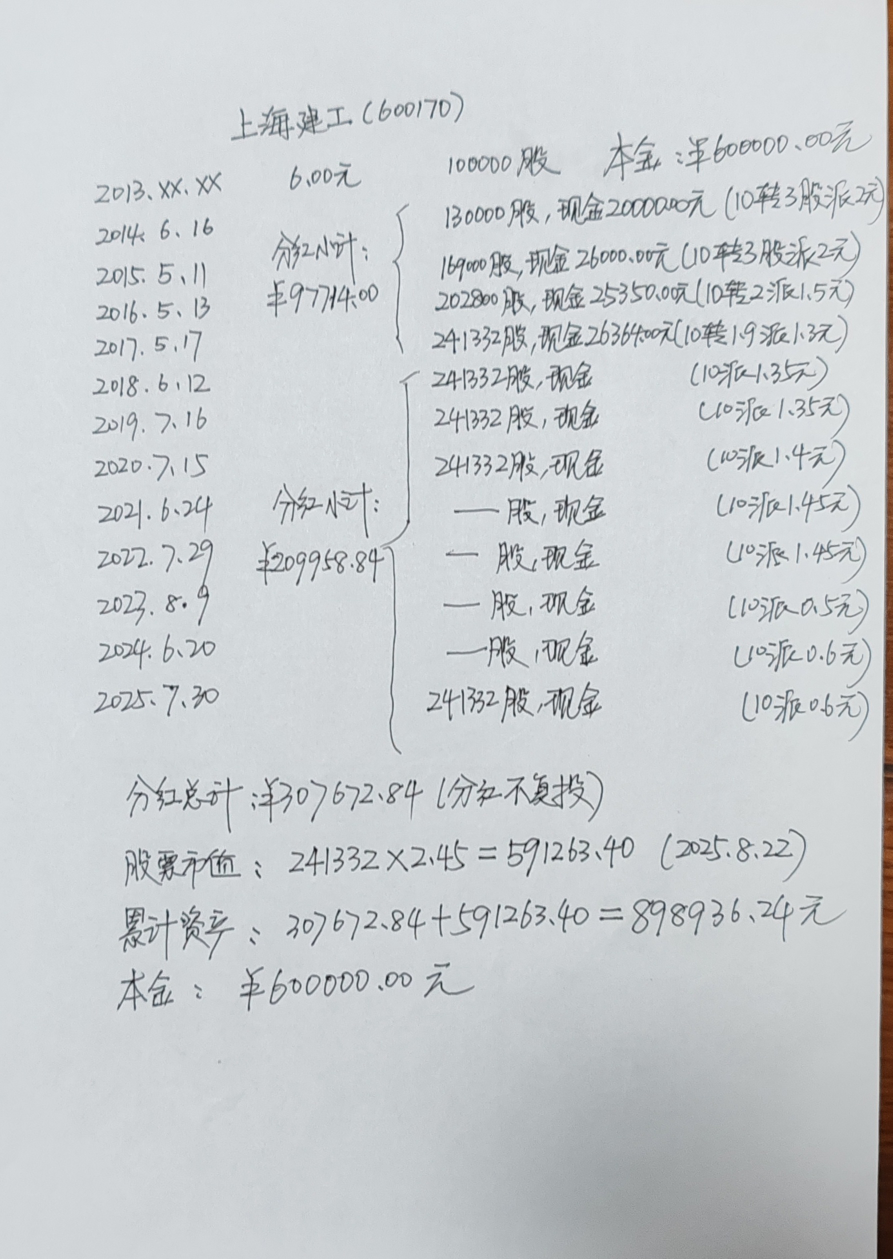 上海建工(600170)
2013.XX.XX 6.00元 100000股 本金:¥600000.00元
2014.6.16 130000股,现金20000.00元(10转3股派2元)
2015.5.11 分红小计: 169000股,现金26000.00元(10转3股派2元)
2016.5.13 ¥97714.00 202800股,现金25350.00元(10转2派1.5元)
2017.5.17 241332股,现金26364.00元(10转1.9派1.3元)
2018.6.12 241332股,现金 (10派1.35元)
2019.7.16 241332股,现金 (10派1.35元)
2020.7.15 241332股,现金 (10派1.4元)
2021.6.24 分红小计: —股,现金 (10派1.45元)
2022.7.29 ¥209958.84 —股,现金 (10派1.45元)
2023.8.9 —股,现金 (10派0.5元)
2024.6.20 —股,现金 (10派0.6元)
2025.7.30 241332股,现金 (10派0.6元)
分红总计:¥307672.84(分红不复投)
股票市值:241332×2.45=591263.40 (2025.8.22)
累计资产:307672.84+591263.40=898936.24元
本金:¥600000.00元